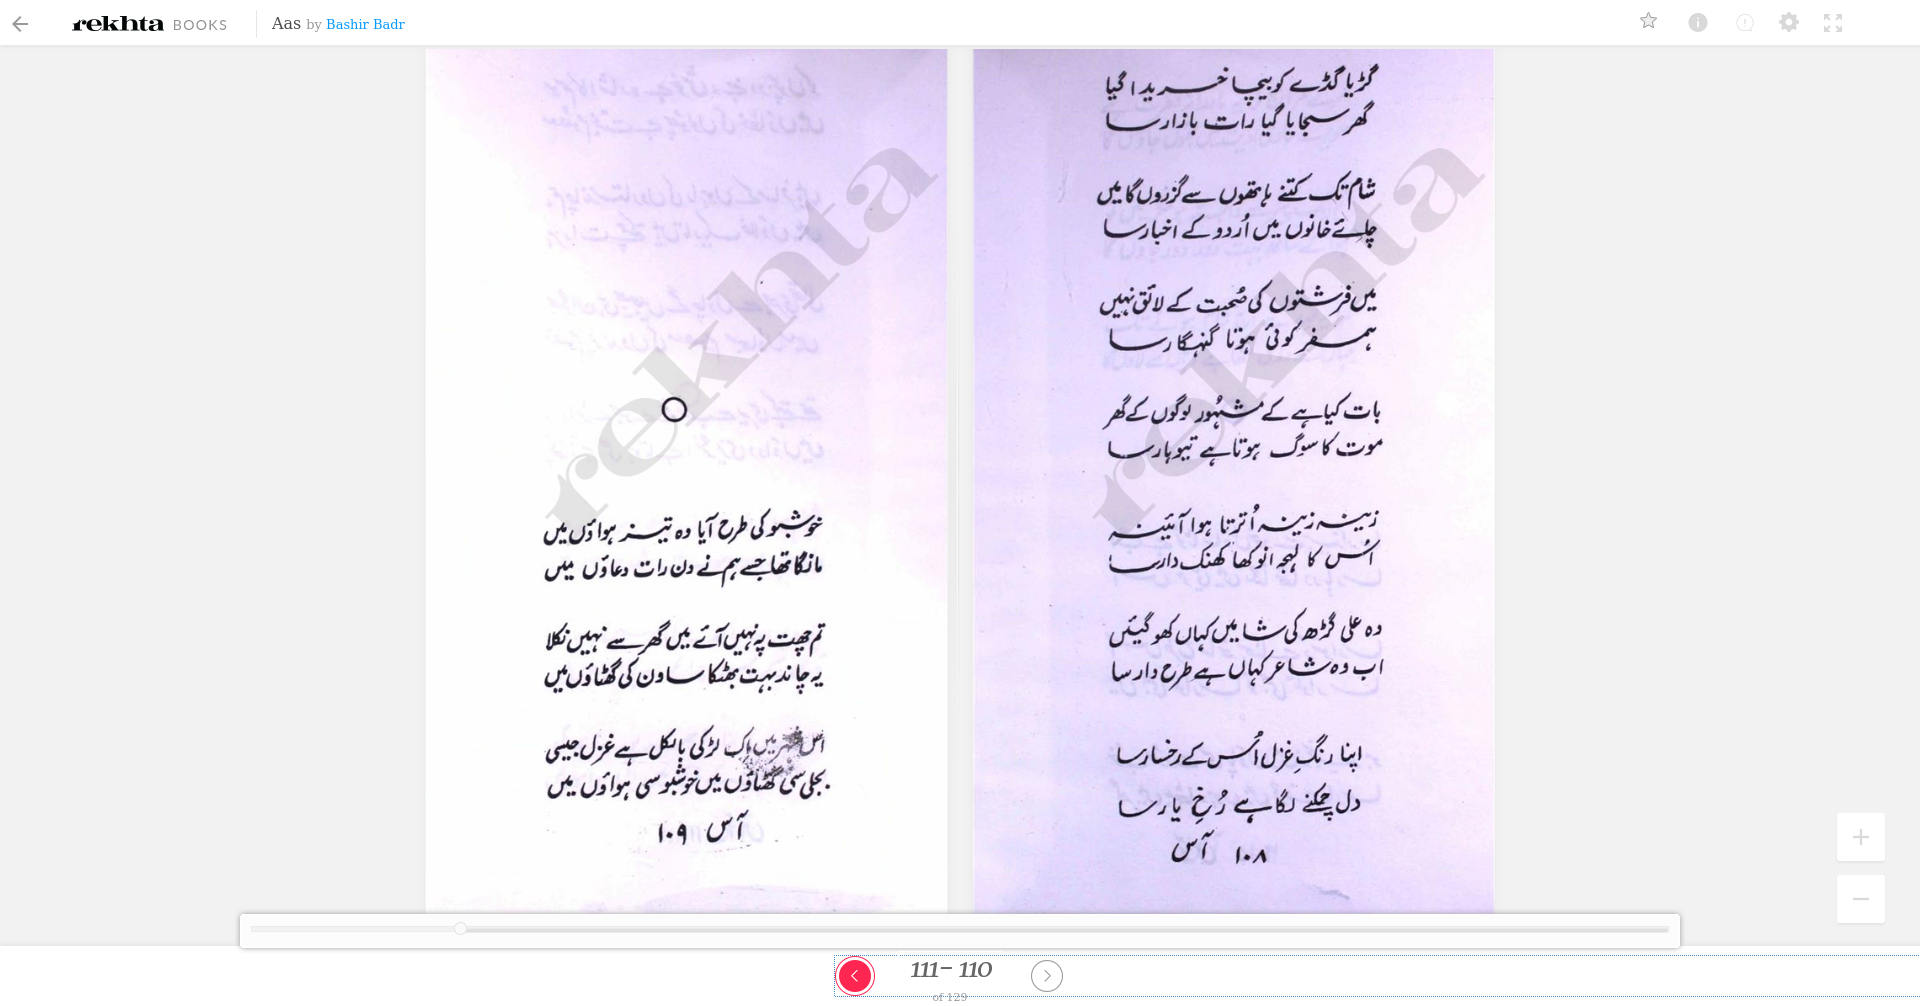 rekhta BOOKS Aas by Bashir Badr
گڑیا گڈے کو بیچا خریدا گیا
گھر سجایا گیا رات بازار سا
شام تک کتنے ہاتھوں سے گزروں گا میں
چائے خانوں میں اُردو کے اخبار سا
میں فرشتوں کی صُحبت کے لائق نہیں
ہمسفر کوئی ہوتا گنہگار سا
بات کیا ہے کے مشہُور لوگوں کے گھر
موت کا سوگ ہوتا ہے تیوہار سا
زینہ زینہ اُترتا ہوا آئینہ
اُس کا لہجہ انوکھا کھنک دار سا
وہ علی گڑھ کی شامیں کہاں کھو گئیں
اب وہ شاعر کہاں ہے طرح دار سا
اپنا رنگِ غزل اُس کے رخسار سا
دل چمکنے لگا ہے رُخِ یار سا
۱۰۸ آس
خوشبو کی طرح آیا وہ تیز ہواؤں میں
مانگا تھا جسے ہم نے دن رات دعاؤں میں
تم چھت پہ نہیں آئے میں گھر سے نہیں نکلا
یہ چاند بہت بھٹکا ساون کی گھٹاؤں میں
اس شہر میں اِک لڑکی بالکل ہے غزل جیسی
بجلی سی گھٹاؤں میں خوشبو سی ہواؤں میں
آس ۱۰۹
rekhta
rekhta
111- 110
of 129